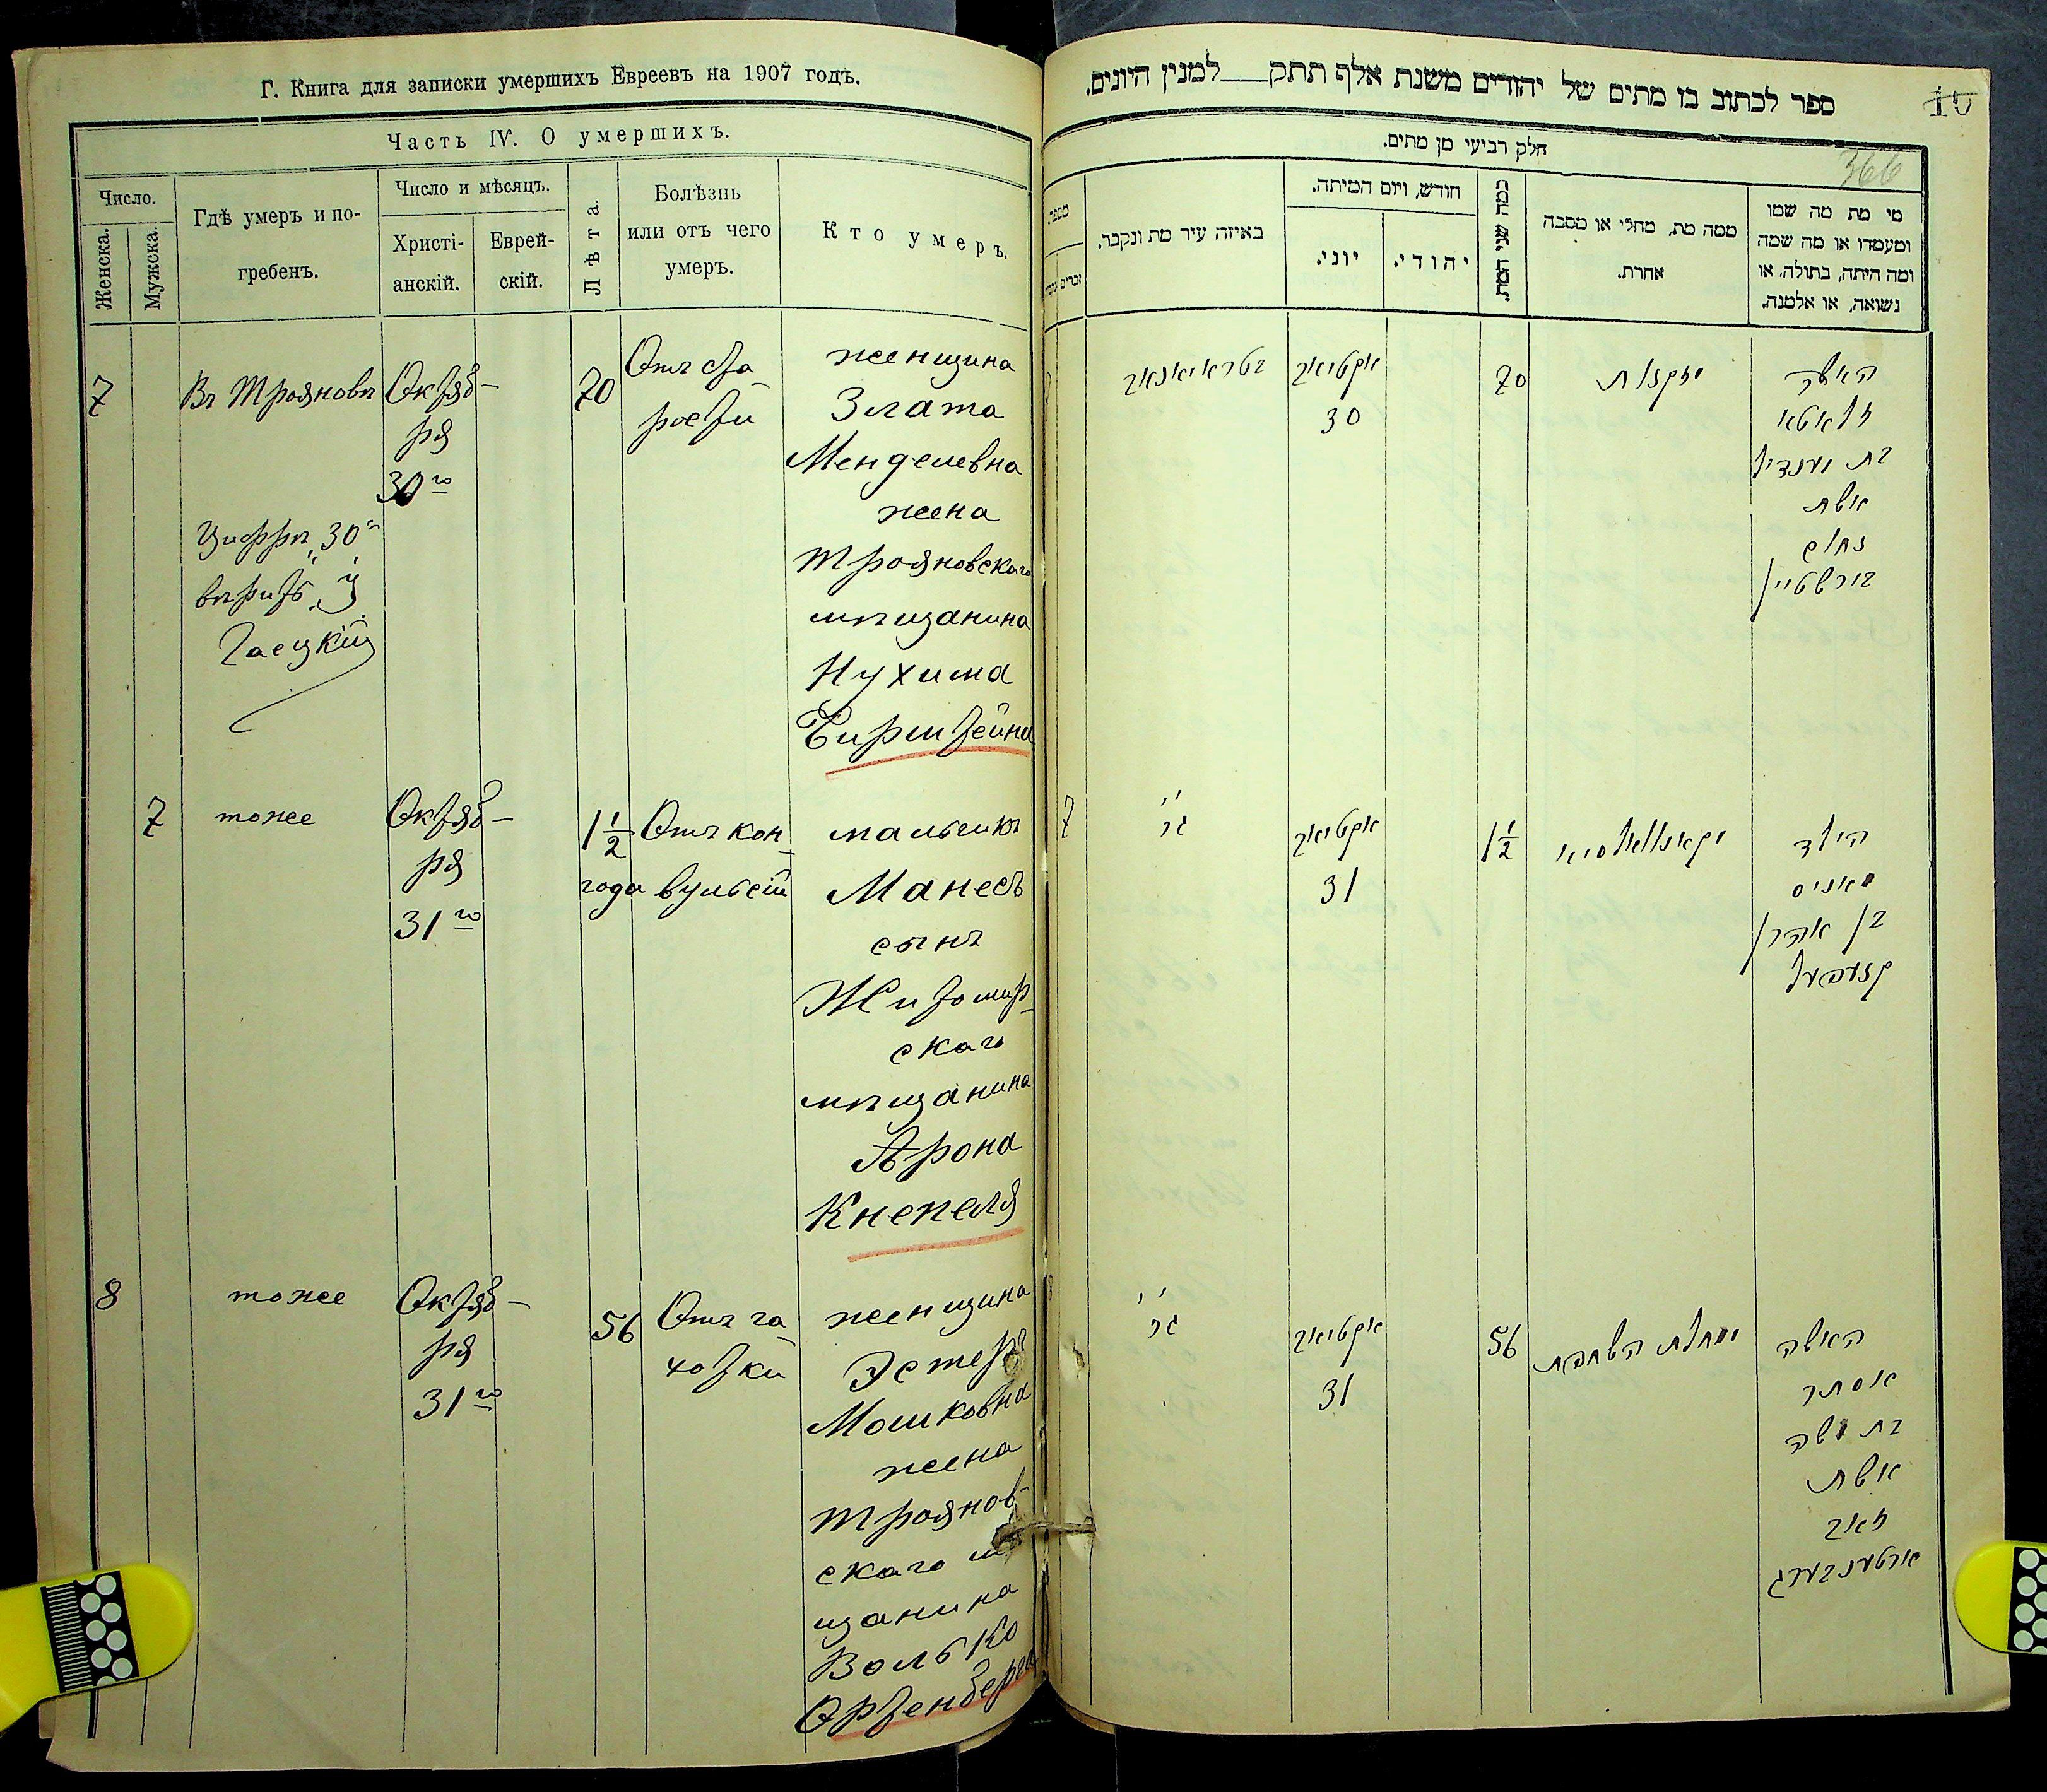 Г. Книга для записки умершихъ Евреевъ на 1907 годъ.
Часть IV. О умершихъ.
Число.
Женска.
Мужска.
Гдѣ умеръ и по-
гребенъ.
Число и мѣсяцъ.
Христі-
анскій.
Еврей-
скій.
Лѣта.
Болѣзнь
или отъ чего
умеръ.
Кто умеръ.
7
Въ Трояновѣ
Октяб-
ря
30го
70
Отъ ста-
рости
женщина
Злата
Менделевна
жена
Трояновскаго
мѣщанина
Нухима
Бирштейна
Цифрѣ „30"
вѣрить
Гаецкій
7
тоже
Октяб-
ря
31го
1 1/2
года
Отъ кон-
вульсій
мальчикъ
Манесъ
сынъ
Житомир-
скаго
мѣщанина
Арона
Кнепеля
8
тоже
Октяб-
ря
31го
56
Отъ ча-
хотки
женщина
Эстеръ
Мошковна
жена
Троянов-
скаго мѣ-
щанина
Волько
Ортенберга
ספר לכתוב בו מתים של יהודים משנת אלף תתק למנין היונים.
10
366
חלק רביעי מן מתים.
מספר
באיזה עיר מת ונקבר.
חודש, ויום המיתה.
יוני.
יהודי.
כמה שני המת.
ממה מת, מחלי או מסבה
אחרת.
מי מת מה שמו
ומעמדו או מה שמה
ומה היתה, בתולה, או
נשואה, או אלמנה.
בטראיאנאב
אקטיאב
30
70
מזקנות
האשה
זלאטא
בת מענדיל
אשת
נחום
בירשטיין
7
גם
אקטיאב
31
1 1/2
הילד
מאניס
בן אהרן
קנעפעל
גם
אקטיאב
31
56
ממחלת השחפת
האשה
אסתר
בת משה
אשת
זאב
ארטענבערג